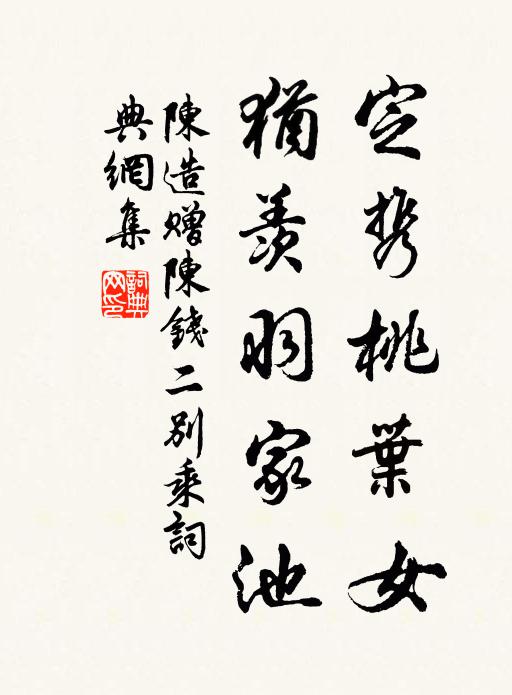 定携桃葉女
猶羨習家池
陳造贈陳錢二別乘詞
典網集
詞典
网印